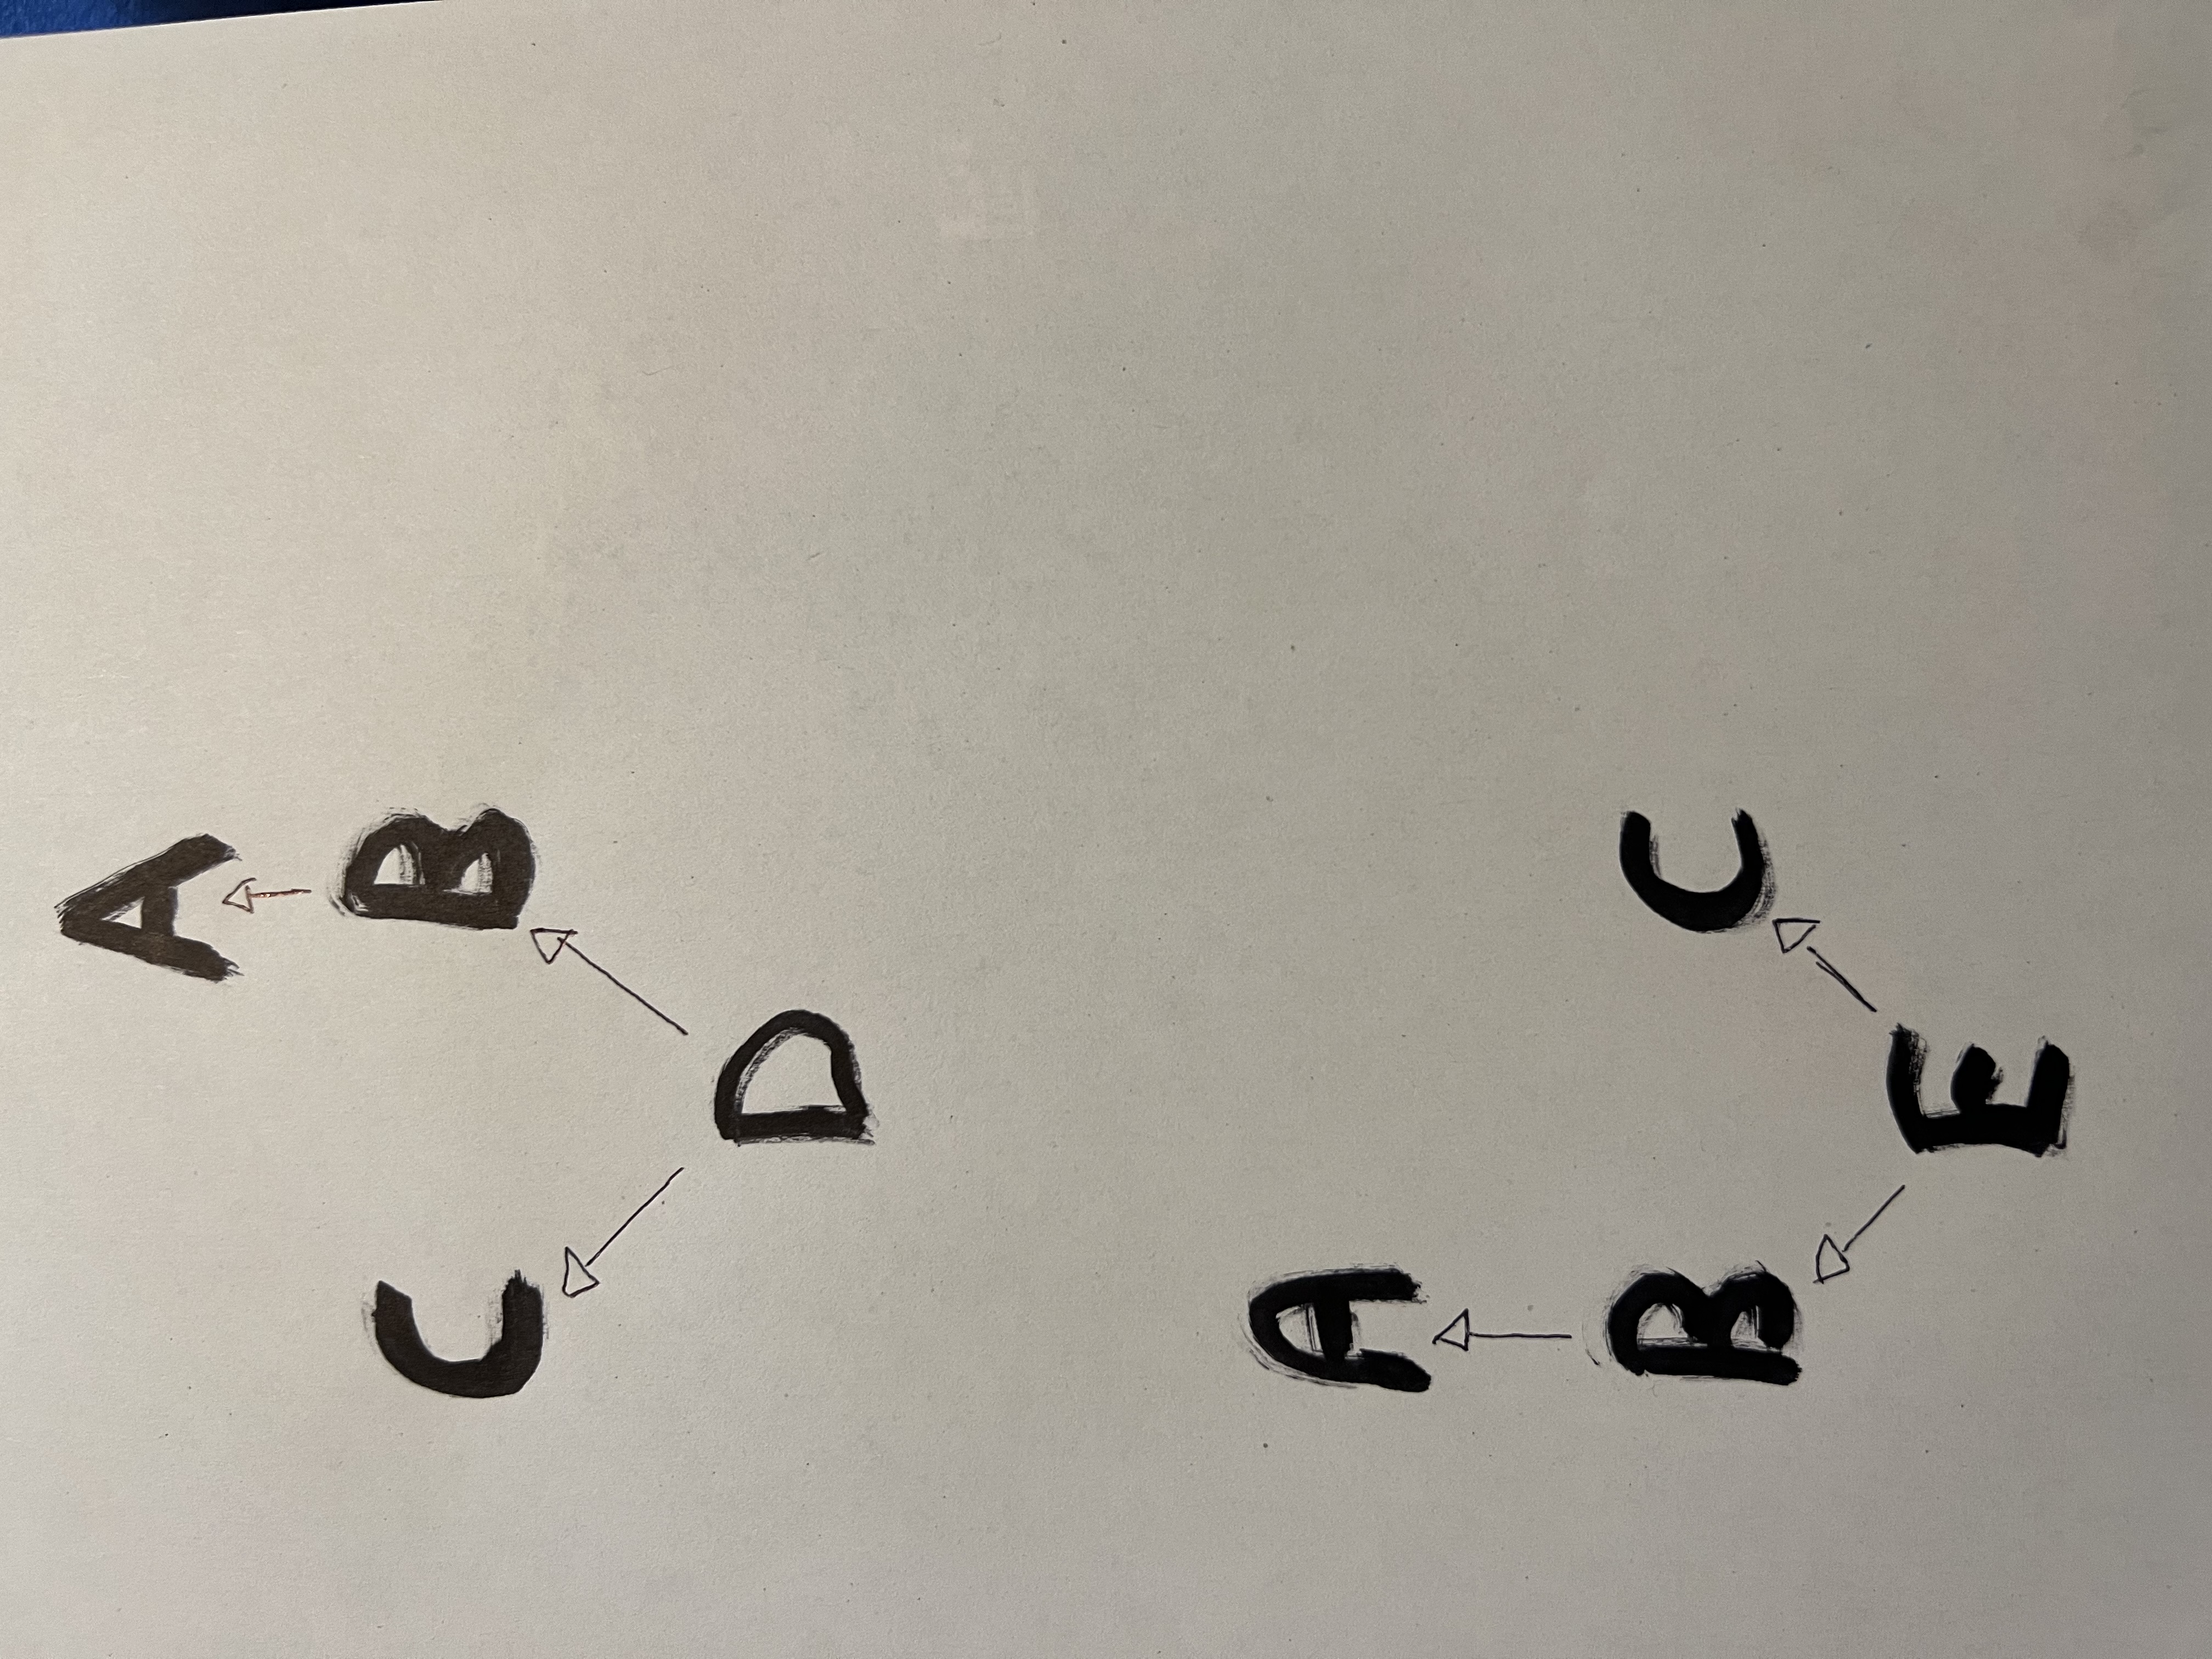 A
C B
D
A
B C
E